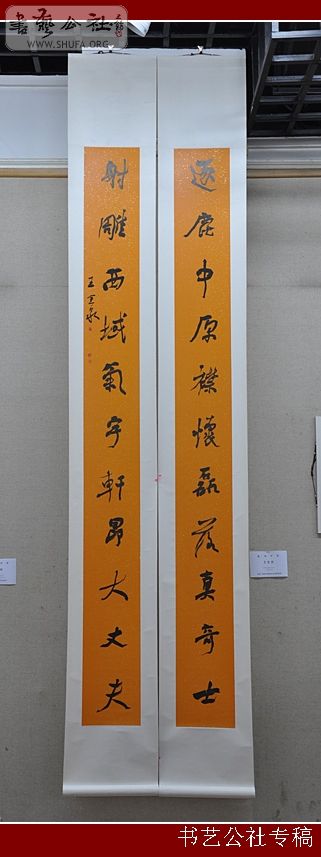 書藝公社
WWW.SHUFA.ORG
逐鹿中原襟懷磊落真奇士
射雕西域氣宇軒昂大丈夫
书艺公社专稿